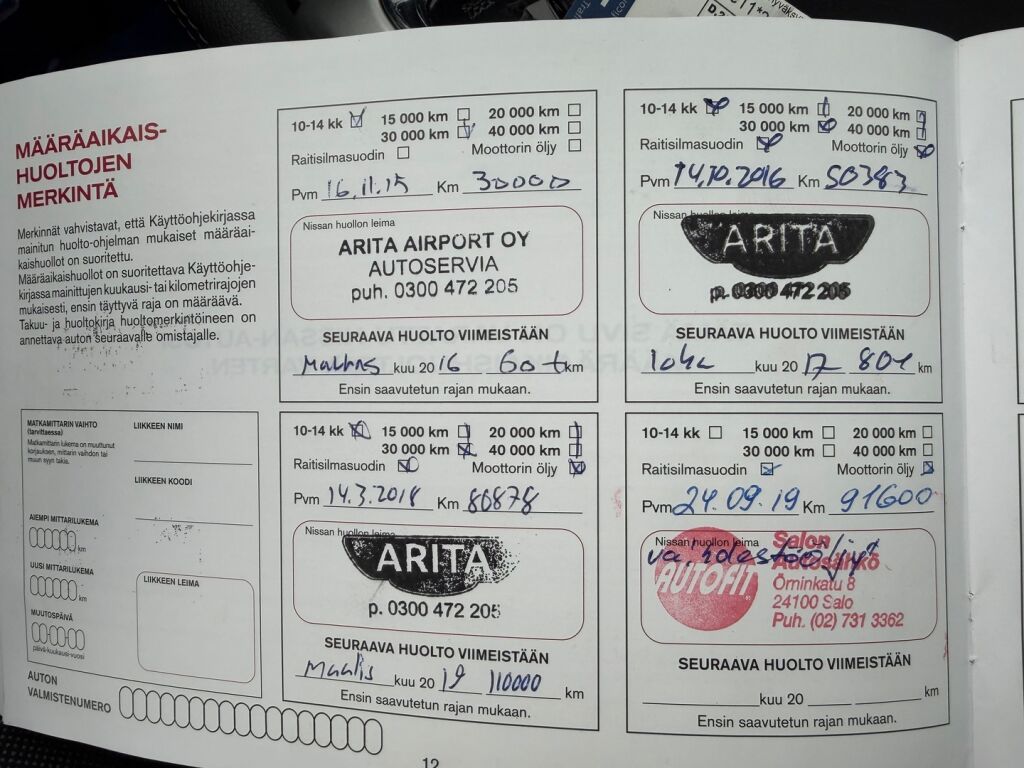 MÄÄRÄAIKAIS-
HUOLTOJEN
MERKINTÄ
Merkinnät vahvistavat, että Käyttöohjekirjassa
mainitun huolto-ohjelman mukaiset määräai-
kaishuollot on suoritettu.
Määräaikaishuollot on suoritettava Käyttöohje-
kirjassa mainittujen kuukausi- tai kilometrirajojen
mukaisesti, ensin täyttyvä raja on määräävä.
Takuu- ja huoltokirja huoltomerkintöineen on
annettava auton seuraavalle omistajalle.
MATKAMITTARIN VAIHTO
(tarvittaessa)
Matkamittarin lukema on muuttunut
korjauksen, mittarin vaihdon tai
muun syyn takia.
AIEMPI MITTARILUKEMA
km
UUSI MITTARILUKEMA
km
MUUTOSPÄIVÄ
päivä-kuukausi-vuosi
LIIKKEEN NIMI
LIIKKEEN KOODI
LIIKKEEN LEIMA
AUTON
VALMISTENUMERO
10-14 kk 15 000 km 20 000 km
30 000 km 40 000 km
Raitisilmasuodin Moottorin öljy
Pvm 16.11.15 Km 30000
Nissan huollon leima
ARITA AIRPORT OY
AUTOSERVIA
puh. 0300 472 205
SEURAAVA HUOLTO VIIMEISTÄÄN
kuu 20 16 60 t km
Ensin saavutetun rajan mukaan.
10-14 kk 15 000 km 20 000 km
30 000 km 40 000 km
Raitisilmasuodin Moottorin öljy
Pvm 14.10.2016 Km 50383
Nissan huollon leima
ARITA
p. 0300 472 205
SEURAAVA HUOLTO VIIMEISTÄÄN
Loka kuu 20 17 80t km
Ensin saavutetun rajan mukaan.
10-14 kk 15 000 km 20 000 km
30 000 km 40 000 km
Raitisilmasuodin Moottorin öljy
Pvm 14.3.2018 Km 80878
Nissan huollon leima
ARITA
p. 0300 472 205
SEURAAVA HUOLTO VIIMEISTÄÄN
Maalis kuu 20 19 110000 km
Ensin saavutetun rajan mukaan.
10-14 kk 15 000 km 20 000 km
30 000 km 40 000 km
Raitisilmasuodin Moottorin öljy
Pvm 24.09.19 Km 91600
Nissan huollon leima
AUTOFIT
Salon
Autosähkö
Örninkatu 8
24100 Salo
Puh. (02) 731 3362
SEURAAVA HUOLTO VIIMEISTÄÄN
kuu 20 km
Ensin saavutetun rajan mukaan.
12